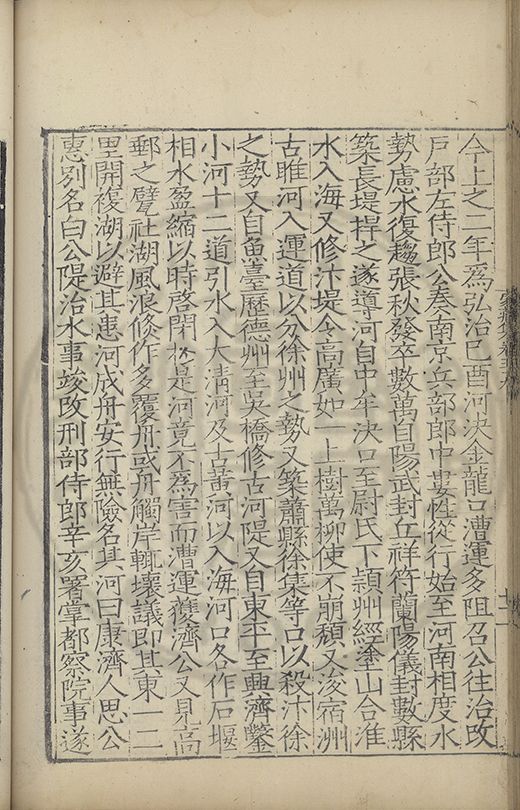 今上之二年爲弘治己酉河決金龍口漕運多阻召公往治改
戶部左侍郎公奏南京兵部郎中婁性從行始至河南相度水
勢慮水復趨張秋發卒數萬自陽武封丘祥符蘭陽儀封數縣
築長堤捍之遂導河自中牟決口至尉氏下潁州經塗山合淮
水入海又修汴堤令高廣如一上樹萬柳使不崩頹又浚宿州
古睢河入運道以分徐州之勢又築蕭縣徐集等口以殺汴徐
之勢又自魚臺歷德州至吳橋修古河隄又自東平至興濟鑿
小河十二道引水入大清河及古黃河以入海河口各作石堰
相水盈縮以時啓閉於是河竟不爲害而漕運復濟公又見高
郵之甓社湖風浪倏作多覆舟或舟觸岸輒壞議即其東一二
里開複湖以避其患河成舟安行無險名其河曰康濟人思公
惠別名白公隄治水事竣改刑部侍郎辛亥署掌都察院事遂